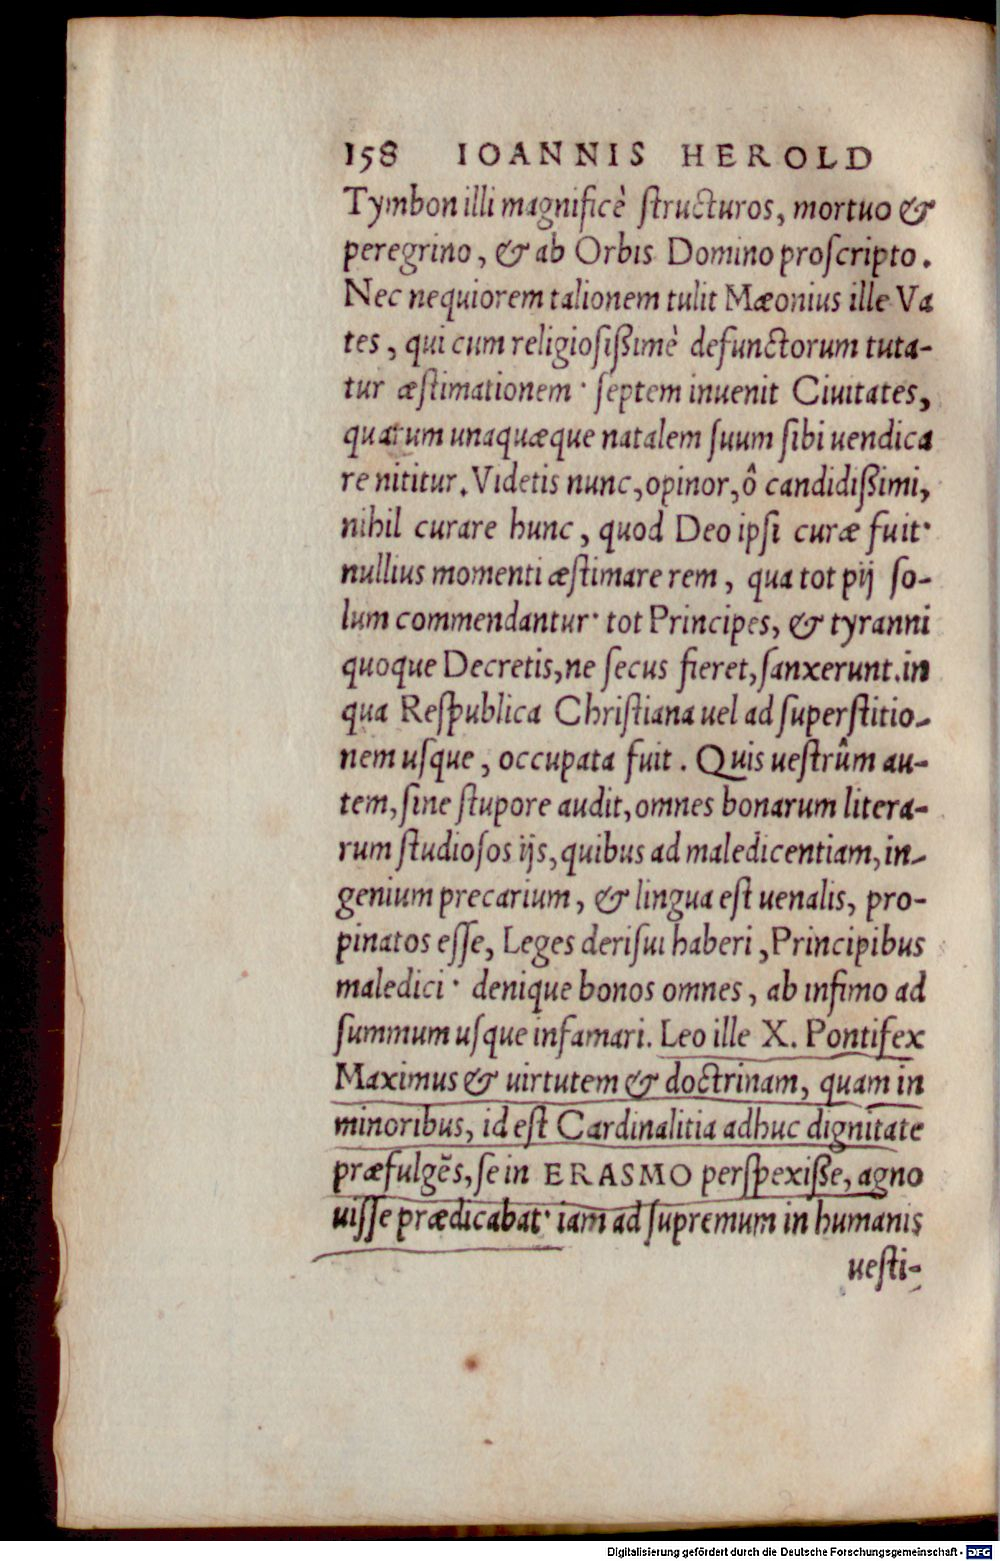 158 IOANNIS HEROLD
Tymbon illi magnificè ſtructuros, mortuo &
peregrino, & ab Orbis Domino proſcripto.
Nec nequiorem talionem tulit Mæonius ille Va
tes, qui cum religioſißimè defunctorum tuta-
tur æſtimationem· ſeptem inuenit Ciuitates,
quarum unaquæque natalem ſuum ſibi uendica
re nititur. Videtis nunc, opinor, ô candidißimi,
nihil curare hunc, quod Deo ipſi curæ fuit·
nullius momenti æſtimare rem, qua tot pij ſo-
lum commendantur· tot Principes, & tyranni
quoque Decretis, ne ſecus fieret, ſanxerunt. in
qua Reſpublica Chriſtiana uel ad ſuperſtitio-
nem uſque, occupata fuit. Quis ueſtrûm au-
tem, ſine ſtupore audit, omnes bonarum litera-
rum ſtudioſos ijs, quibus ad maledicentiam, in-
genium precarium, & lingua eſt uenalis, pro-
pinatos eſſe, Leges deriſui haberi, Principibus
maledici· denique bonos omnes, ab infimo ad
ſummum uſque infamari. Leo ille X. Pontifex
Maximus & uirtutem & doctrinam, quam in
minoribus, id eſt Cardinalitia adhuc dignitate
præfulgẽs, ſe in ERASMO perſpexiße, agno
uiſſe prædicabat· iam ad ſupremum in humanis
ueſti-
Digitalisierung gefördert durch die Deutsche Forschungsgemeinschaft - DFG